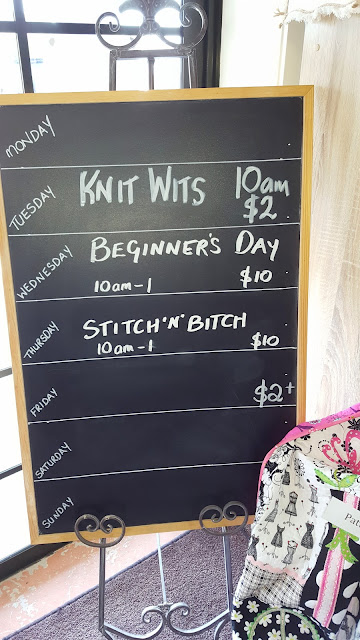 MONDAY
TUESDAY KNIT WITS 10am
$2
WEDNESDAY BEGINNER'S DAY
10am-1 $10
THURSDAY STITCH 'N' BITCH
10am-1 $10
FRIDAY $2+
SATURDAY
SUNDAY